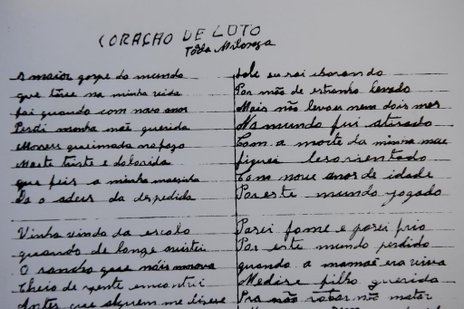 CORACAO DE LUTO
Toda Milonga
o maior gorpe do mundo
que tive na minha vida
foi quando com nove anos
Perdi minha mãe querida
Morreu queimada no fogo
Morte triste e dolorida
que feis a minha maezinha
Da o adeus da despedida
Vinha vindo da escola
quando de longe avistei
O rancho que nóis morava
Cheio de gente encontrei
Antes que alguem me disese
eu sai chorando
Por mão de estranho levado
Mais não levou nem dois mes
No mundo fui atirado
Com a morte da minha mae
fiquei lesorientado
Com nove anos de idade
Por este mundo jogado
Pasei fome e pasei frio
Por este mundo perdido
quando a mamãe era viva
Me disse filho querido
Pra não robar não matar